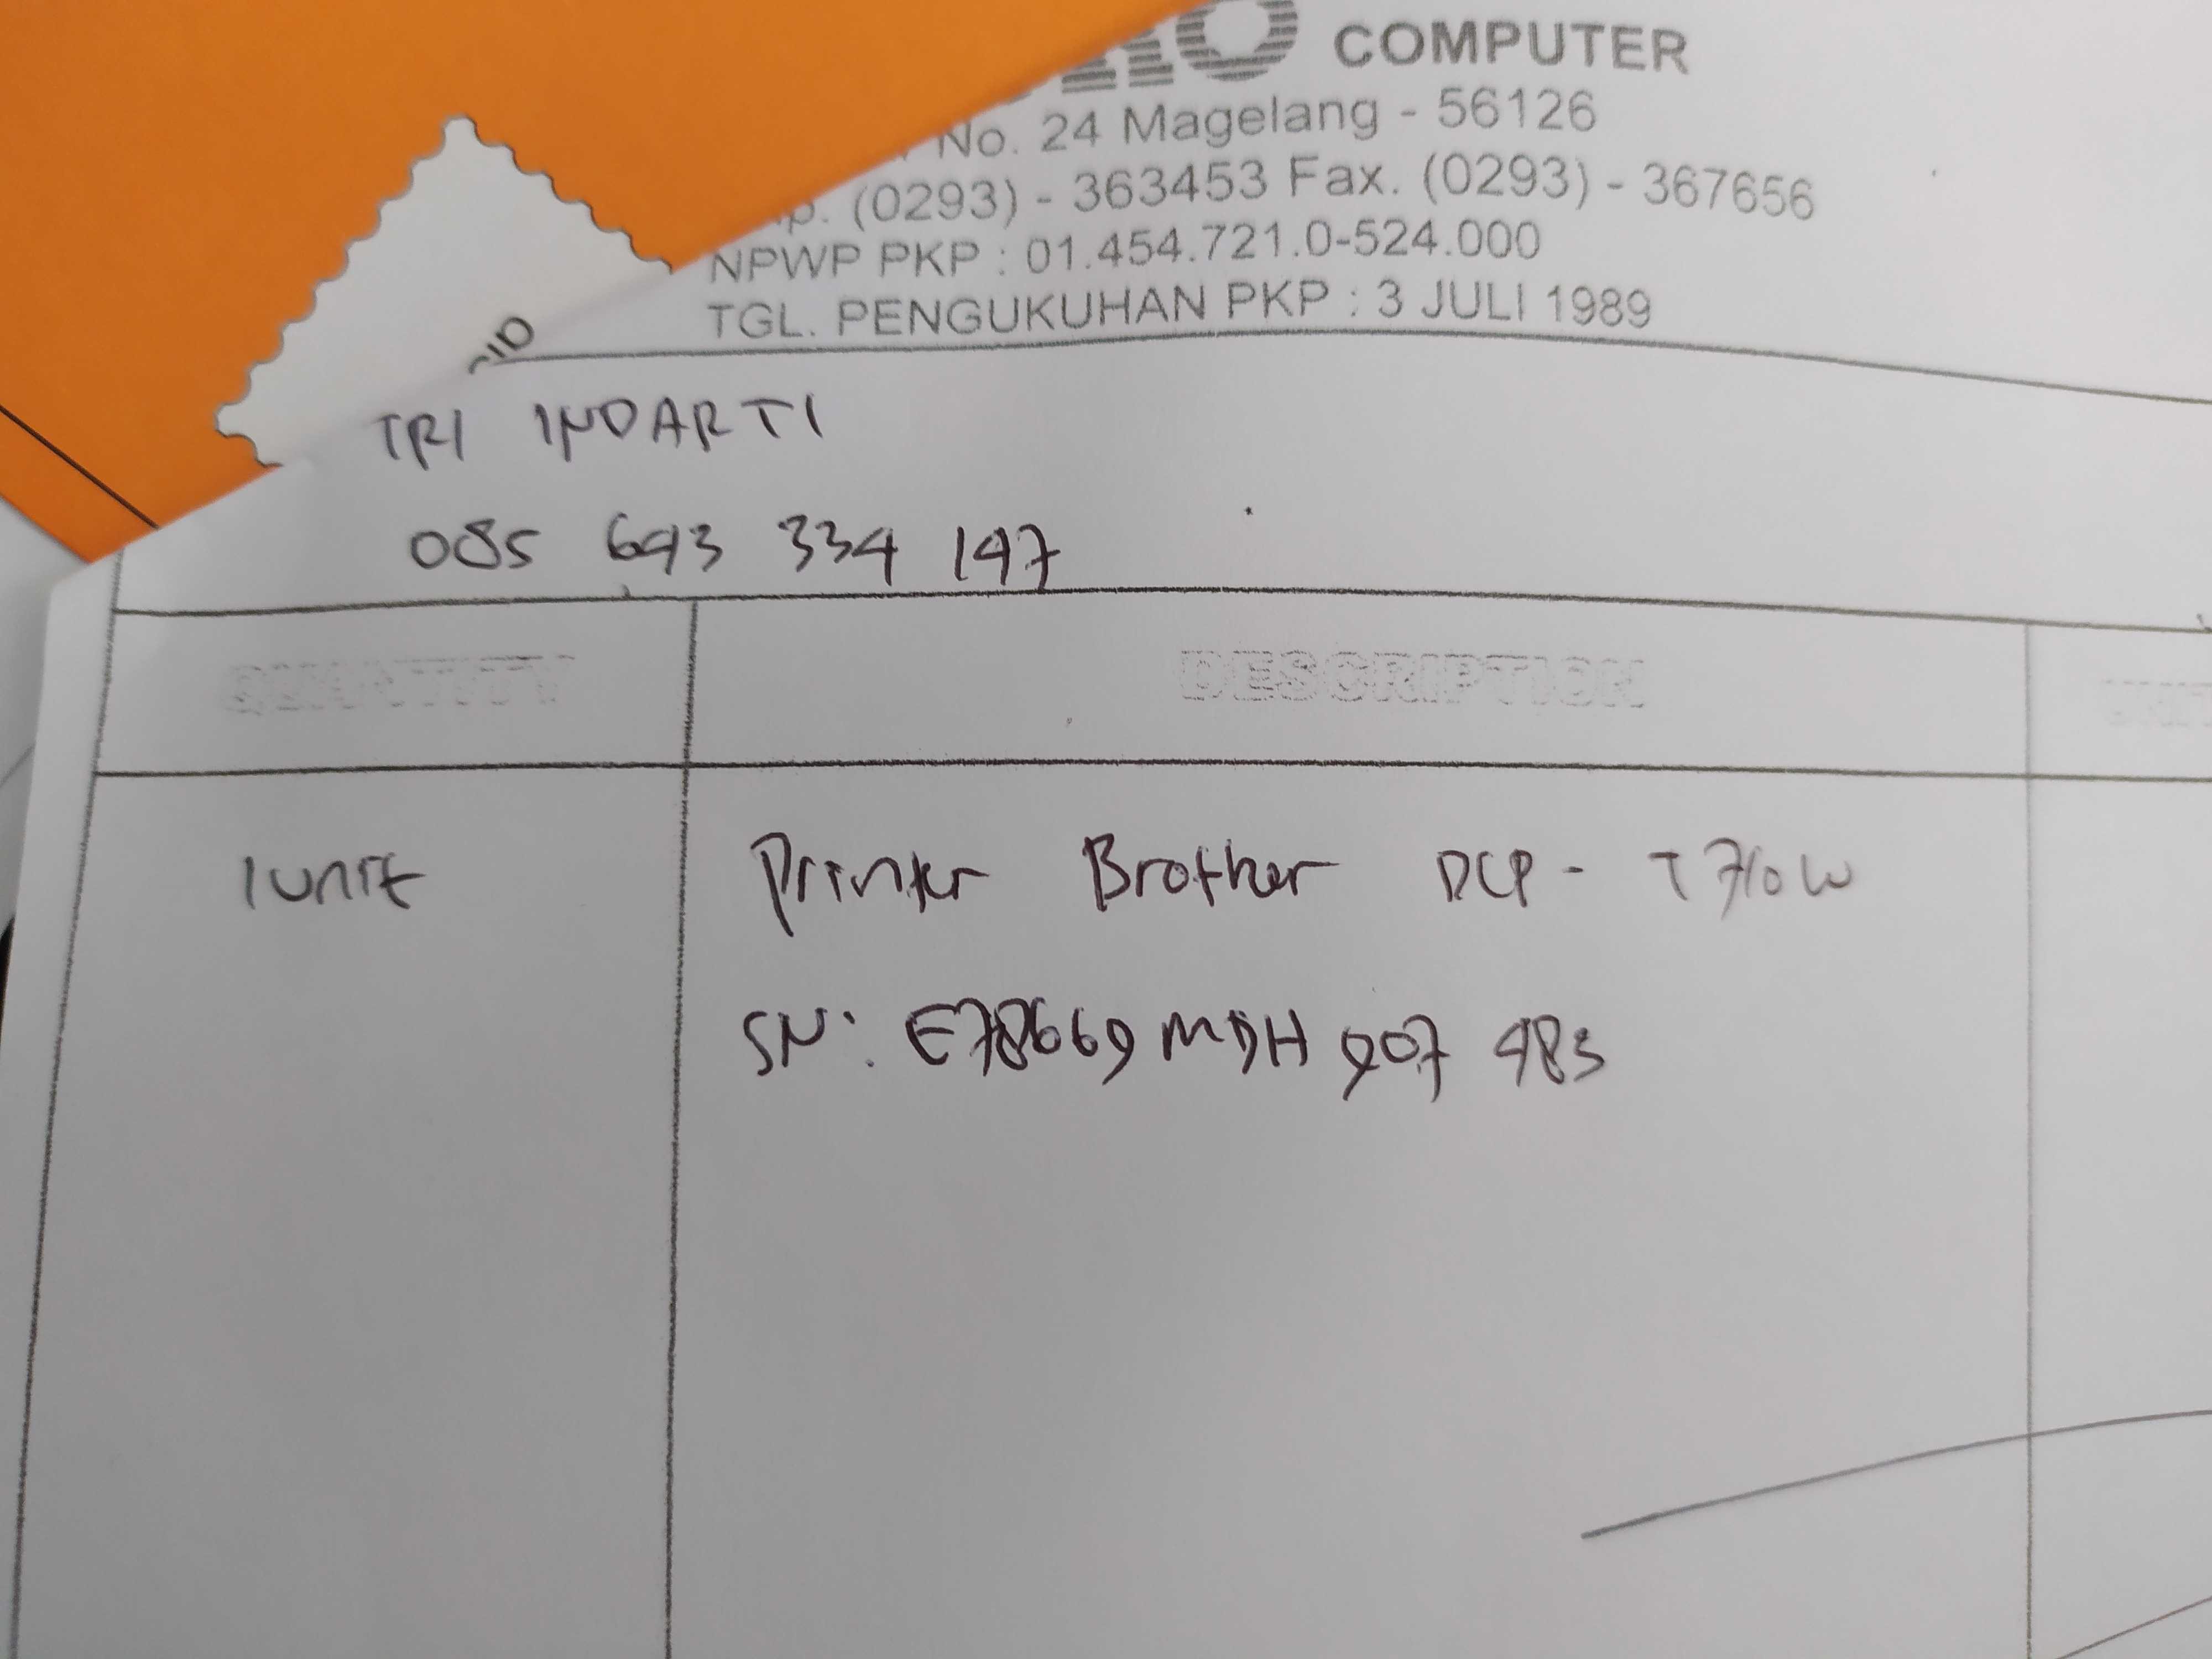 COMPUTER
No. 24 Magelang - 56126
p. (0293) - 363453 Fax. (0293) - 367656
NPWP PKP : 01.454.721.0-524.000
TGL. PENGUKUHAN PKP : 3 JULI 1989
TRI INDARTI
085 693 334 197
QUANTITY DESCRIPTION
1 unit Printer Brother DCP - T710W
SN: E78669MDH907 983